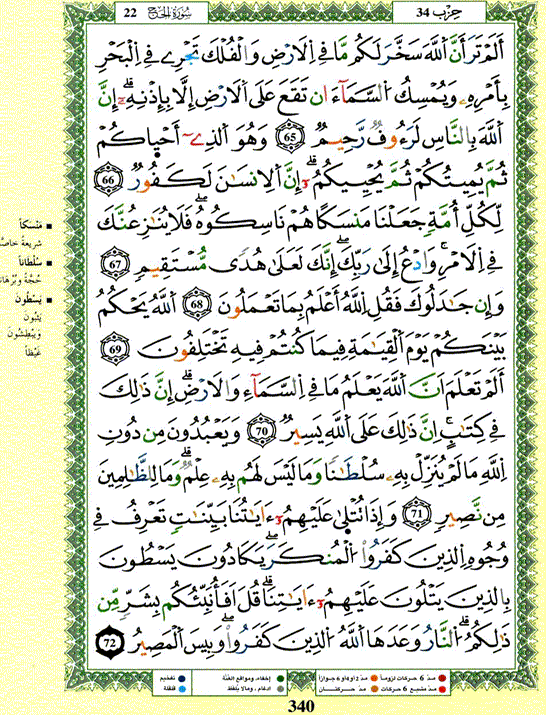 سُورَةُ الحَجّ 22
حِزْب 34
أَلَمْ تَرَ أَنَّ اَ۬للَّهَ سَخَّرَ لَكُم مَّا فِے اِ۬لَارْضِ وَالْفُلْكَ تَجْرِے فِے اِ۬لْبَحْرِ
بِأَمْرِهِۦ وَيُمْسِكُ اُ۬لسَّمَآءَ ان تَقَعَ عَلَى اَ۬لَارْضِ إِلَّا بِإِذْنِهِۦٓۖ إِنَّ
اَ۬للَّهَ بِالنَّاسِ لَرَءُوفٞ رَّحِيمٞ 65 وَهُوَ اَ۬لذِےٓ أَحْيَاكُمْ
ثُمَّ يُمِيتُكُمْ ثُمَّ يُحْيِيكُمُۥٓۖ إِنَّ اَ۬لِانسَٰنَ لَكَفُورٞ 66
لِّكُلِّ أُمَّةٖ جَعَلْنَا مَنسَكًا هُمْ نَاسِكُوهُۖ فَلَا يُنَٰزِعُنَّكَ
فِے اِ۬لَامْرِۖ وَادْعُ إِلَىٰ رَبِّكَۖ إِنَّكَ لَعَلَىٰ هُدٗى مُّسْتَقِيمٖ 67
وَإِن جَٰدَلُوكَ فَقُلِ اِ۬للَّهُ أَعْلَمُ بِمَا تَعْمَلُونَ 68 اَ۬للَّهُ يَحْكُمُ
بَيْنَكُمْ يَوْمَ اَ۬لْقِيَٰمَةِ فِيمَا كُنتُمْ فِيهِ تَخْتَلِفُونَ 69
أَلَمْ تَعْلَمَ اَنَّ اَ۬للَّهَ يَعْلَمُ مَا فِے اِ۬لسَّمَآءِ وَالَارْضِۖ إِنَّ ذَٰلِكَ
فِے كِتَٰبٍۖ إِنَّ ذَٰلِكَ عَلَى اَ۬للَّهِ يَسِيرٞ 70 وَيَعْبُدُونَ مِن دُونِ
اِ۬للَّهِ مَا لَمْ يُنَزِّلْ بِهِۦ سُلْطَٰنٗا وَمَا لَيْسَ لَهُم بِهِۦ عِلْمٞۖ وَمَا لِلظَّٰلِمِينَ
مِن نَّصِيرٖ 71 وَإِذَا تُتْلَىٰ عَلَيْهِمُۥٓ ءَايَٰتُنَا بَيِّنَٰتٖ تَعْرِفُ فِے
وُجُوهِ اِ۬لذِينَ كَفَرُواْ اُ۬لْمُنكَرَۖ يَكَادُونَ يَسْطُونَ
بِالذِينَ يَتْلُونَ عَلَيْهِمُۥٓ ءَايَٰتِنَاۖ قُلَ اَفَأُنَبِّئُكُم بِشَرّٖ مِّن
ذَٰلِكُمُۖ اُ۬لنَّارُ وَعَدَهَا اَ۬للَّهُ اُ۬لذِينَ كَفَرُواْۖ وَبِيسَ اَ۬لْمَصِيرُ 72
مَنسَكاً
شريعة خاصّة
سُلْطَاناً
حُجَّةً وبُرْهَاناً
يَسْطُونَ
يَثِبُونَ
وَيَبْطِشُونَ
غَيْظاً
مدّ 6 حركات لزوماً
مدّ 2 أو 4 أو 6 جوازاً
إخفاء، ومواقع الغُنَّة
تفخيم
مدّ مشبع 6 حركات
مدّ حركتان
إدغام، وما لا يُلفَظ
قلقلة
340